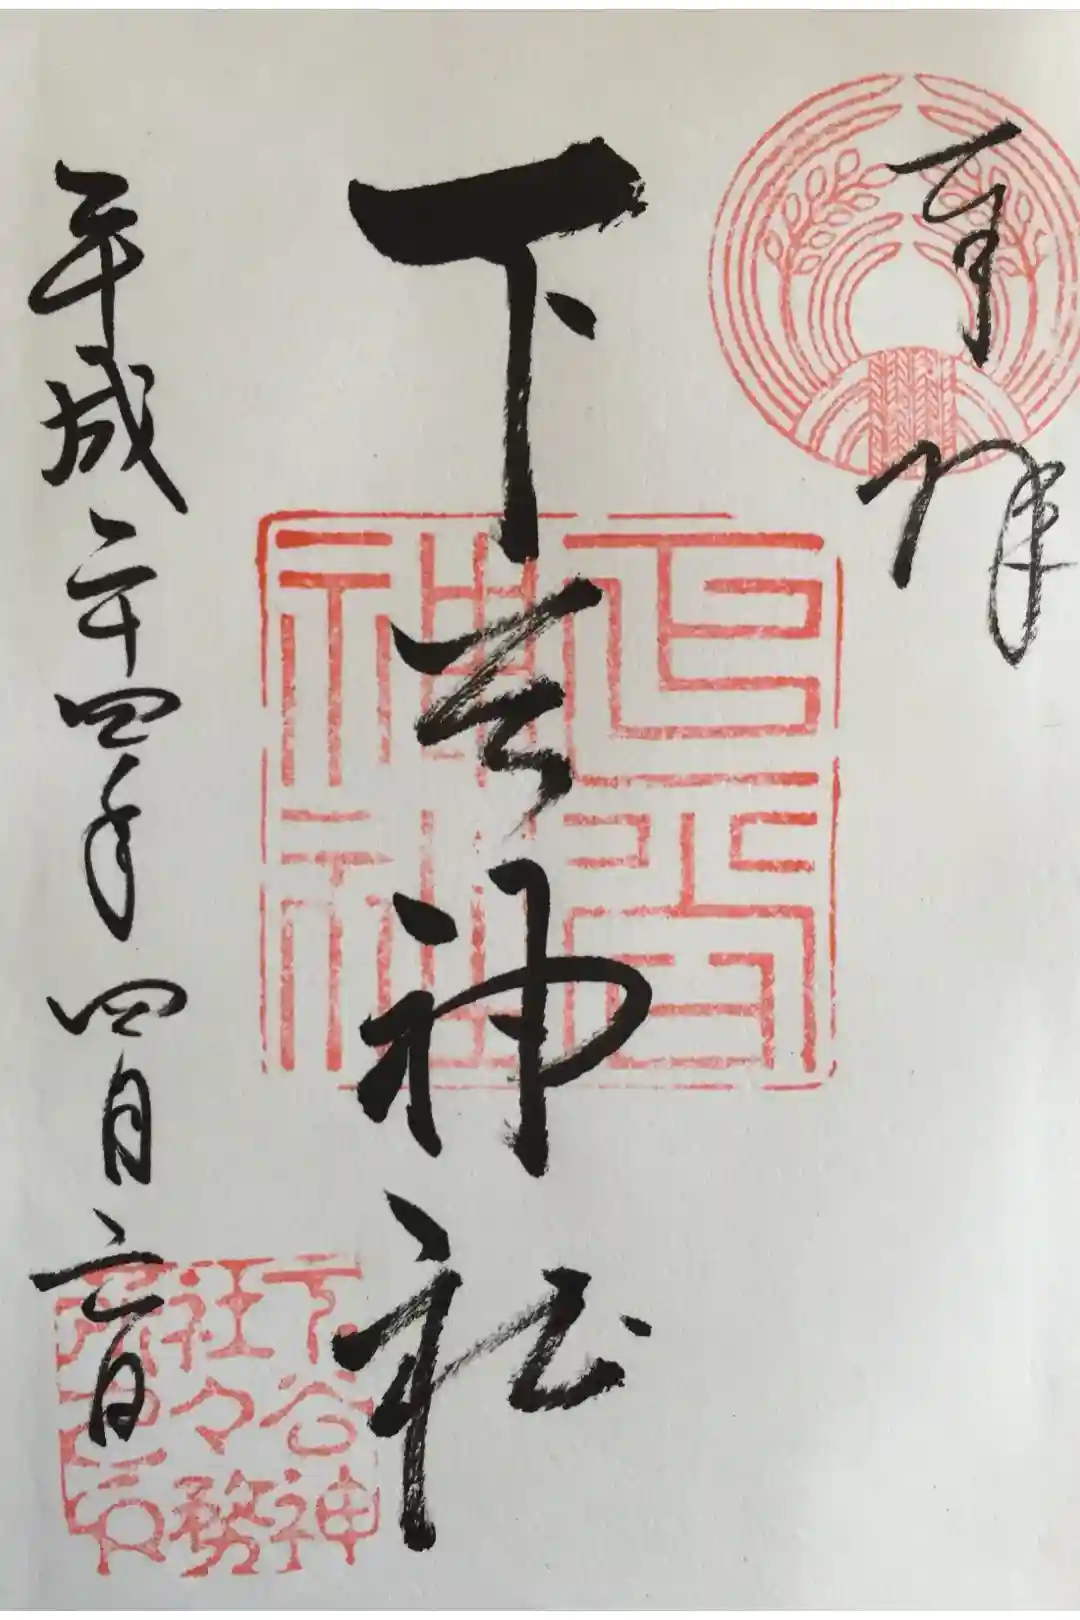 奉拝
下谷神社
下谷神社
平成二十四年四月六日
下谷神
社々務
所之印